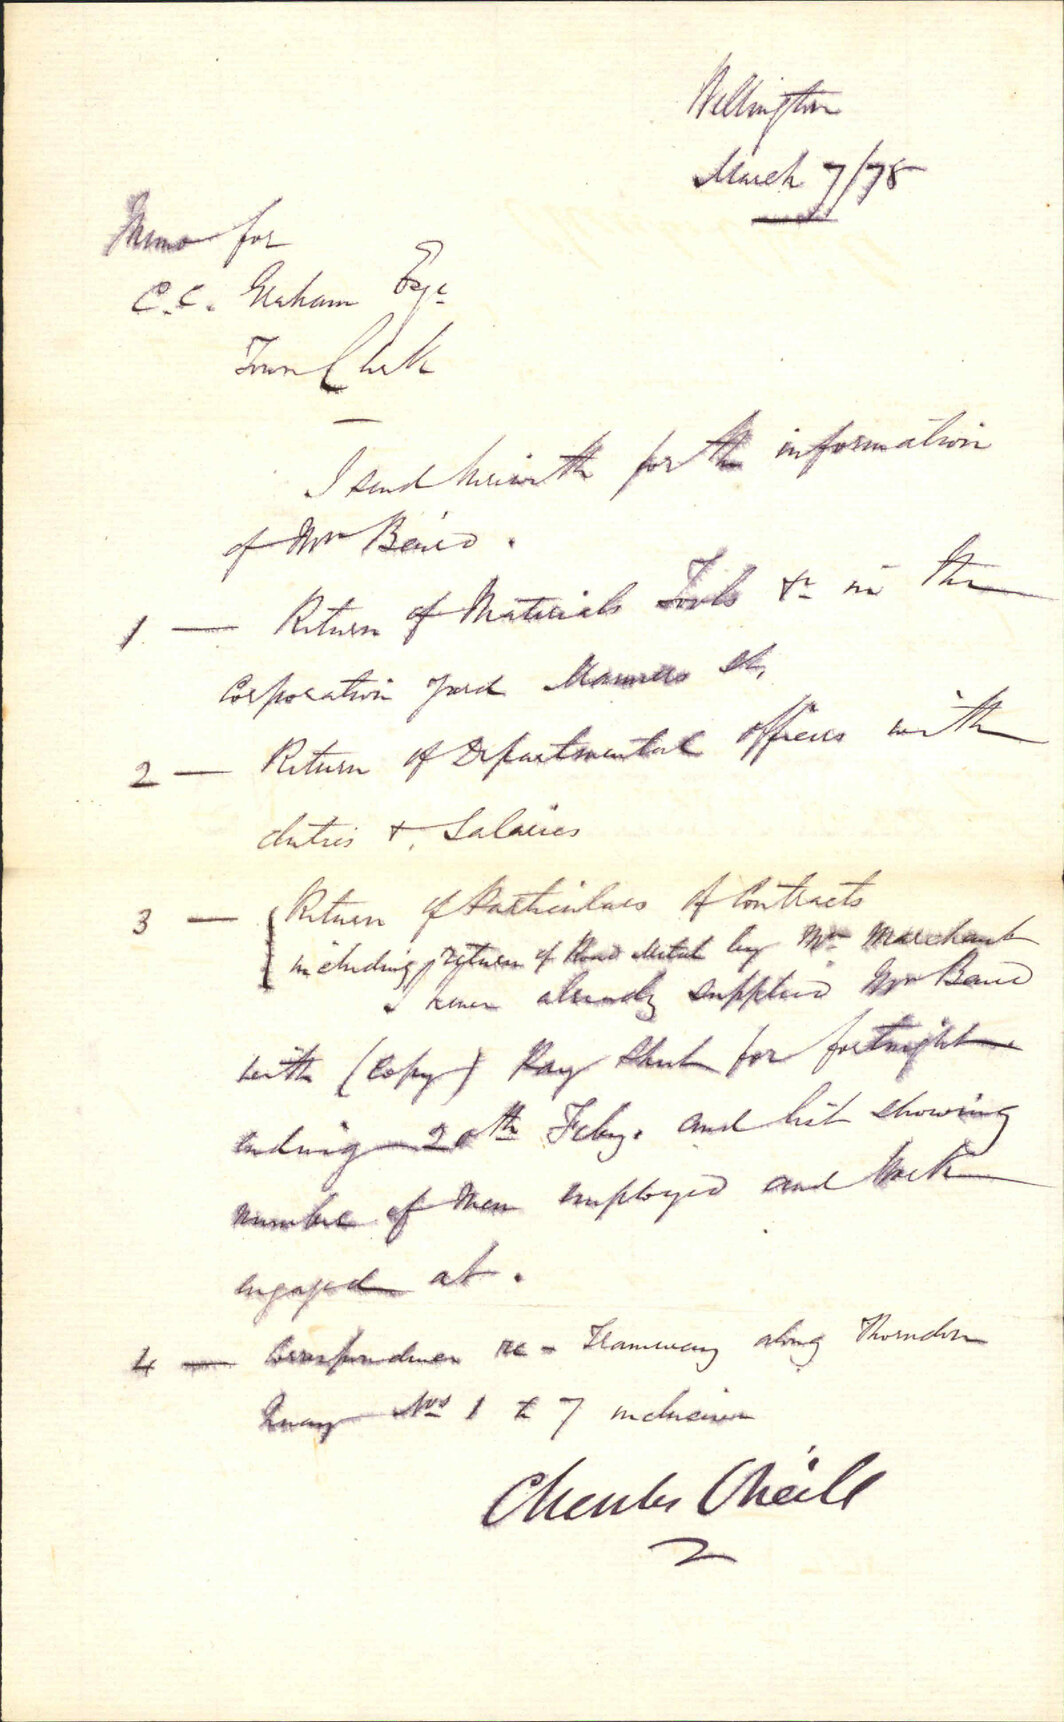 Wellington
March 7/78
Memo for
C.C. Graham Esqr
Town Clerk
I send herewith for the information
of Mr Baird.
1 — Return of Materials Tools &c in the
Corporation yard Manners St,
2 — Return of Departmental officers with
duties & Salaries
3 — Return of Particulars of Contracts
including return of Road Metal by Mr Marchant
I have already supplied Mr Baird
with (Copy) Pay Sheet for fortnight
ending 20th Feby. and list showing
number of Men employed and Work
engaged at.
4 — Correspondence re - Tramway along Thorndon
Quay Nos 1 to 7 inclusive
Charles O'Neill